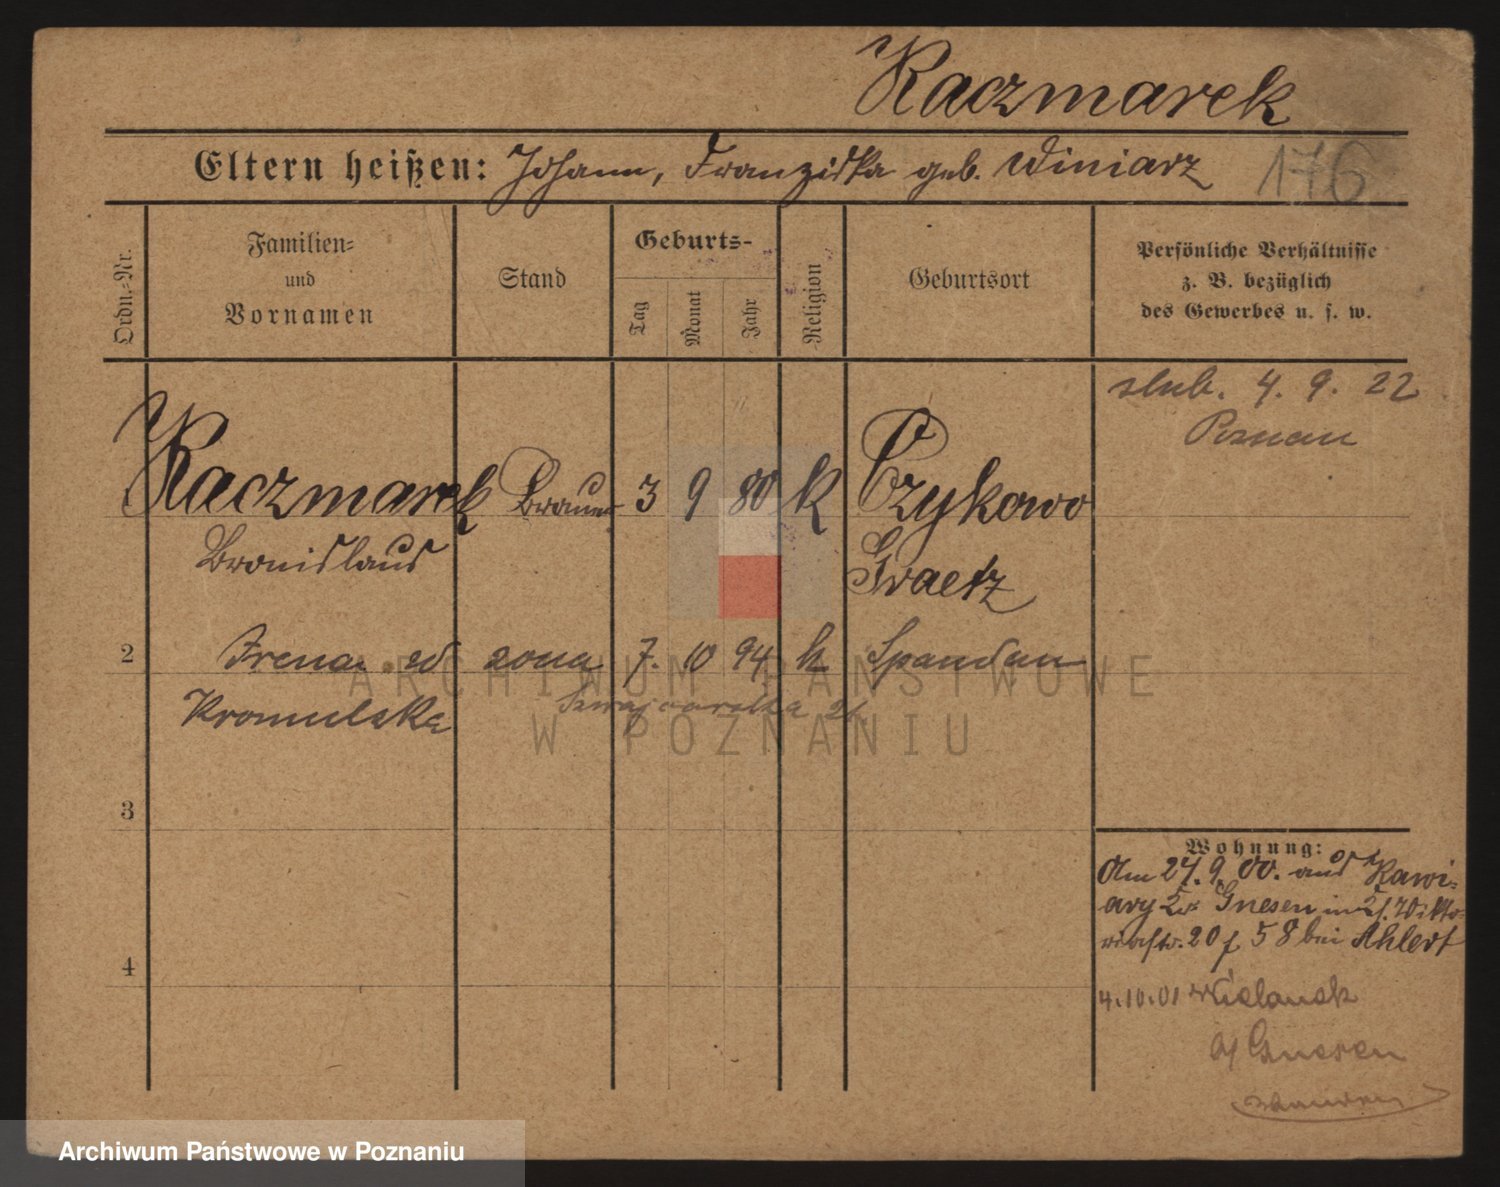 Kaczmarek
Eltern heißen: Johann, Franziska geb. Winiarz
176
Ordn.-Nr.
Familien-
und
Vornamen
Stand
Geburts-
Tag
Monat
Jahr
Religion
Geburtsort
Persönliche Verhältnisse
z. B. bezüglich
des Gewerbes u. s. w.
slub. 4. 9. 22
Poznan
Kaczmarek Brauer 3 9 80 k Czykowo
Bronislaus Graetz
2 Irena zd zona 7. 10 94 k Spandau
Kromulska
3
4
Wohnung:
Am 24. 9. 00. aus
Gnesen
20 58 bei Ahlert
4.10.01
Gnesen
ARCHIWUM PAŃSTWOWE
W POZNANIU
Archiwum Państwowe w Poznaniu